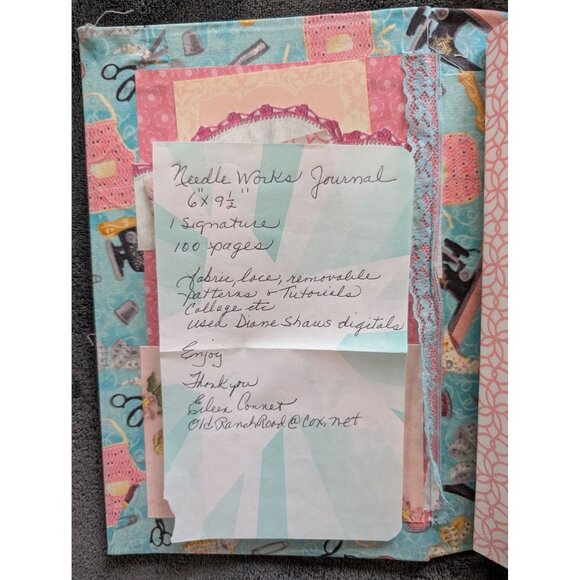 Needle Works Journal
6" x 9 1/2"
1 Signature
100 pages
fabric, lace, removable
patterns & Tutorials
Collage etc
used Diane Shaws digitals
Enjoy
Thank you
Eileen Conner
OldRanchRoad@Cox.net